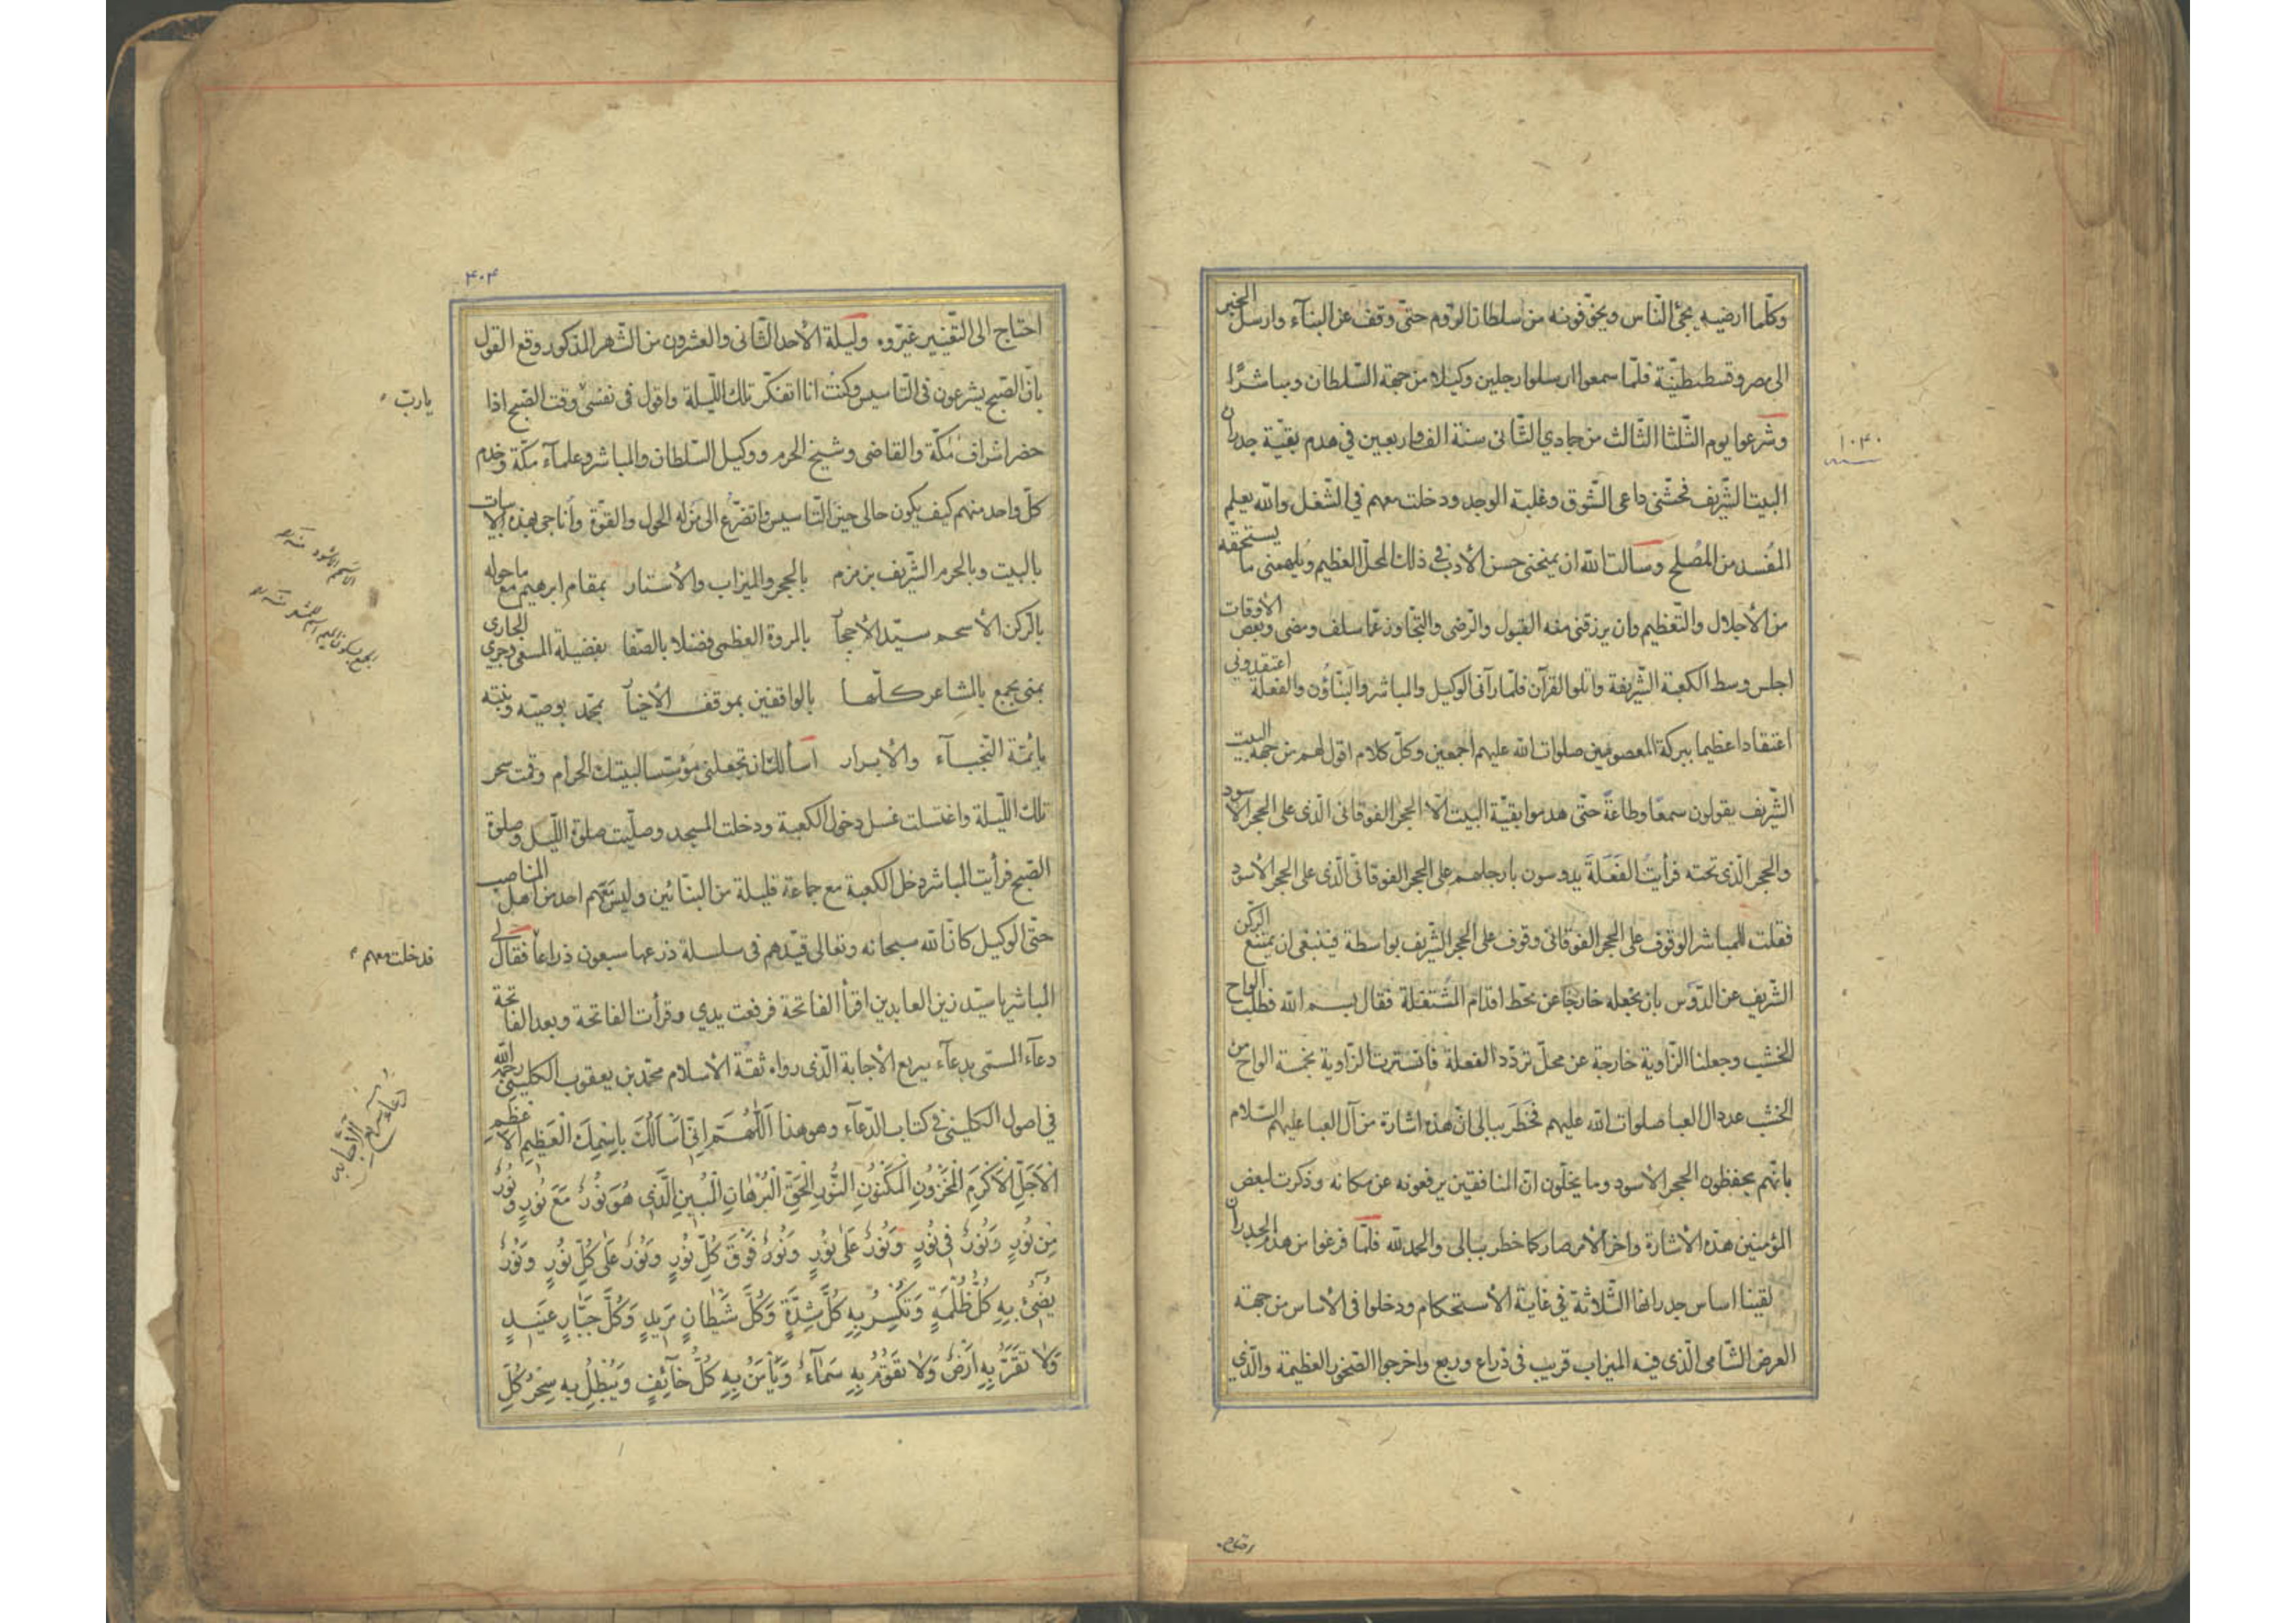 وكلّما ارضيه يجئ النّاس ويخوّفونه من سلطان الرّوم حتّى وقف عن البنآء وارسل الخبر
الى مصر وقسطنطنيّة فلمّا سمعوا ارسلوا رجلين وكيلا من جهة السّلطان ومباشرًا
وشرعوا يوم الثّلثا الثّالث من جمادي الثّانى سنة الف واربعين فى هدم بقيّة جدران
١٠٤٠
البيت الشّريف فحثّنى داعى الشّوق وغلبة الوجد ودخلت معهم فى الشّغل والله يعلم
المُفسد من المُصلح وسألت الله ان يمنحنى حسن الأدب فى ذلك المحلّ العظيم ويلهمنى ما يستحقّه
من الأجلال والتّعظيم وان يرزقنى منه القبول والرّضى والتّجاوز عمّا سلف ومضى وبعض الأوقات
اجلس وسط الكعبة الشّريفة واتلو القرآن فلمّا رآنى الوكيل والمباشر والبنّاؤن والفعلة اعتقدونى
اعتقادا عظيما ببركة المعصومين صلوات الله عليهم اجمعين وكلّ كلام اقول لهم من جهة البيت
الشّريف يقولون سمعًا وطاعةً حتّى هدموا بقيّة البيت الّا الحجر الفوقانى الّذى على الحجر الأسود
والحجر الّذى تحته فرأيتُ الفَعَلَةَ يدوسون بارجلهم على الحجر الفوقانى الّذى على الحجر الأسود
فقلت للمباشر الوقوف على الحجر الفوقانى وقوف على الحجر الشّريف بواسطة فينبغى ان يمتنع الرّكن
الشّريف عن الدّوس بان تجعله خارجًا عن محّط اقدام المُشتغلة فقال بسم الله فطلب الواح
الخشب وجعلنا الزّاوية خارجة عن محلّ تردّد الفعلة فاتسترت الزّاوية بخمسة الواح من
الخشب عدد ال العبا صلوات الله عليهم فخَطَرَ ببالى انّ هذه اشارة من آل العبا عليهم السّلام
بانّهم يحفظون الحجر الأسود وما يخلّون انّ المنافقين يرفعونه عن مكانه وذكرت لبعض
المؤمنين هذه الأشارة واخر الأمر صار كما خطر ببالى والحمد لله فلمّا فرغوا من هدم الجدران
لقينا اساس جدرانها الثّلاثة فى غاية الأستحكام ودخلوا فى الأساس من جهة
العرض الشّامى الّذى فيه الميزاب قريب فى ذراع وربع واخرجوا الصّخور العظيمة والّذى
احتاج
۴۰۴
احتاج الى التّغيير غيّروه وليلة الأحد الثّانى والعشرون من الشّهر المذكور وقع القول
بانّ الصّبح يشرعون فى التّاسيس وكنتُ انا اتفكّر تلك اللّيلة واقول فى نفسى وقت الصّبح اذا
يا ربّ
حضر اشراف مكّة والقاضى وشيخ الحرم ووكيل السّلطان والمباشر وعلمآء مكّة وخدم
كلّ واحد منهم كيف يكون حالى حين التّاسيس واتضرّع الى من له الحول والقوّة واُناجى بهذه الأبيات
بالبيت وبالحرم الشّريف بزمزم بالحجر والميزاب والأستار بمقام ابرهيم مع ما حوله
بالرّكن الأسحم سيّد الأحجار بالمروة العظمى فضلا بالصّفا بفضيلة المسعى وجرى الجارى
بمنى بجمع بالمشاعر كلّها بالواقفين بموقف الأخيار بمحمّد بوصيّه وبنته
بائمّة النّجبآء والأبرار اسألك ان تجعلنى مؤسّسا لبيتك الحرام وقمت سحر
تلك اللّيلة واغتسلت غسل دخول الكعبة ودخلت المسجد وصلّيت صلوة اللّيل وصلوة
الصّبح فرأيت المباشر دخل الكعبة مع جماعة قليلة من البنّائين وليس معهم احد من اهل المناصب
حتّى الوكيل كانّ الله سبحانه وتعالى قيّدهم فى سلسلة ذرعها سبعون ذراعاً فقال لى
فدخلت معهم
المباشر يا سيّد زين العابدين اقرأ الفاتحة فرفعت يدي وقرأت الفاتحة وبعد الفاتحة
دعآء المسمّى بدعآء سريع الأجابة الّذى رواه ثقة الأسلام محمّد بن يعقوب الكلينى رحمه الله
دعاء سريع الأجابة
فى اصول الكلينى فى كتاب الدّعآء وهو هذا اَللّٰهُمَّ اِنّى اَسْأَلُكَ بِاسْمِكَ الْعَظيمِ الْاَعْظَمِ
الْاَجَلِّ الْاَكْرَمِ الْمَخْزُونِ الْمَكْنُونِ النُّورِ الْحَقِّ الْبُرْهانِ الْمُبينِ الَّذى هُوَ نُورٌ مَعَ نُورٍ وَنُورٌ
مِنْ نُورٍ وَنُورٌ فى نُورٍ وَنُورٌ عَلى نُورٍ وَنُورٌ فَوْقَ كُلِّ نُورٍ وَنُورٌ عَلى كُلِّ نُورٍ وَنُورٌ
يُضيئُ بِهِ كُلُّ ظُلْمَةٍ وَتَكْسِرُ بِهِ كُلَّ شِدَّةٍ وَكُلَّ شَيْطانٍ مَريدٍ وَكُلَّ جَبّارٍ عَنيدٍ
وَلا تَقَرُّ بِهِ اَرْضٌ وَلا تَقَوُمُ بِهِ سَمآءٌ وَيَأْمَنُ بِهِ كُلُّ خآئِفٍ وَيَبْطُلُ بِهِ سِحْرُ كُلِّ